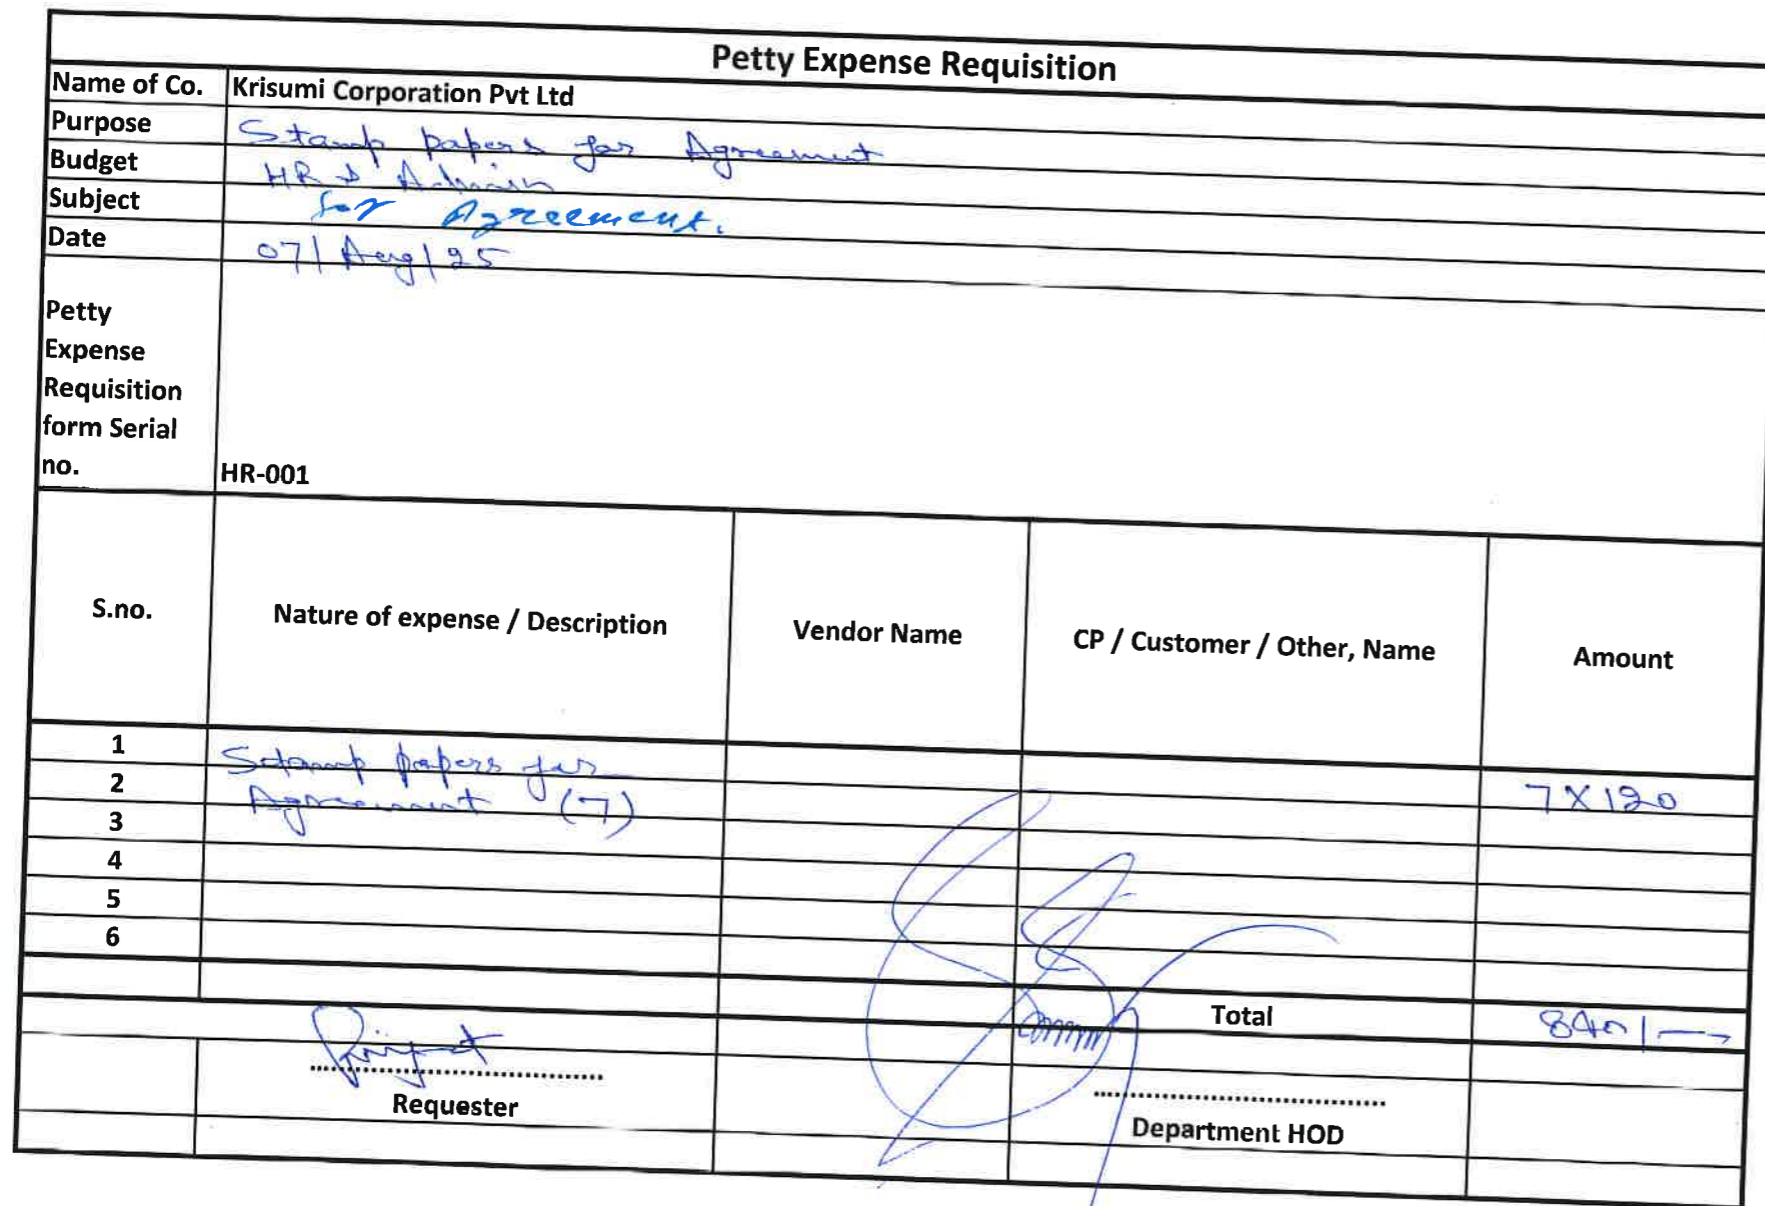 Petty Expense Requisition
Name of Co. Krisumi Corporation Pvt Ltd
Purpose Stamp papers for Agreement
Budget HR & Admin
Subject for Agreement.
Date 07/Aug/25
Petty
Expense
Requisition
form Serial
no. HR-001
S.no. Nature of expense / Description Vendor Name CP / Customer / Other, Name Amount
1 Stamp papers for 7X120
2 Agreement (7)
3
4
5
6
Total 840/-
Requester
Department HOD